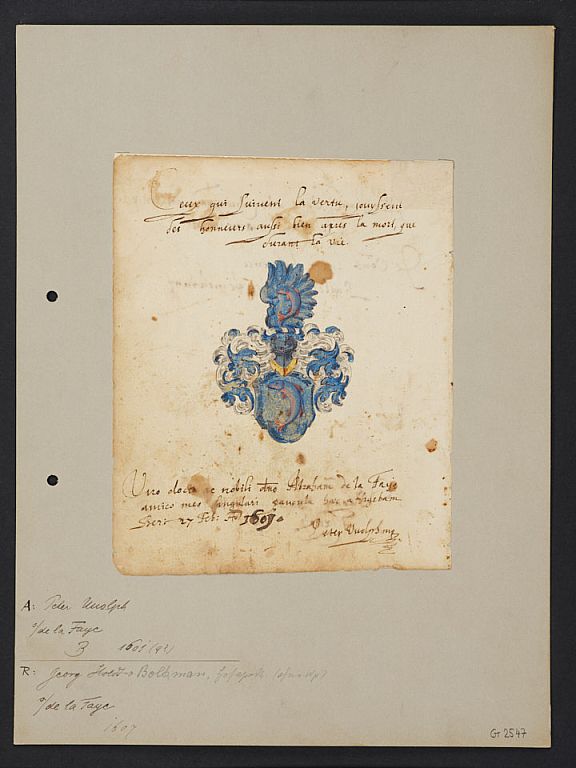 Ceux qui suivent la vertu, jouyssent
des honneurs aussi bien apres la mort, que
durant la vie.
Viro docto ac nobili dno Abrahamo de la Faye
amico meo singulari paucula haec adfigebam
27 Feb: Ao 1601.
Peter Vuolph
A: Peter Vuolph
a/de la Faye
B 1601 (92)
R: Georg Bolkman,
a/de la Faye
1607
Gr 2547